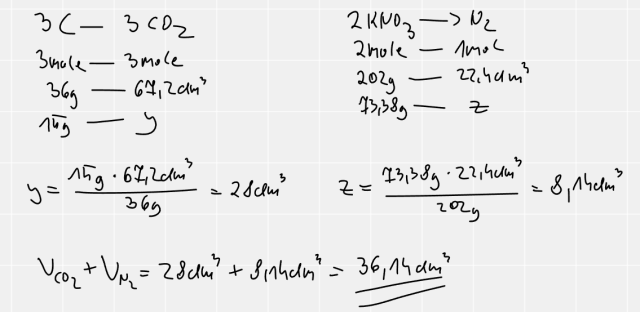 3C — 3CO₂
3mole — 3mole
36g — 67,2dm³
15g — y
2KNO₃ —> N₂
2mole — 1mol
202g — 22,4dm³
73,38g — z
y = 15g · 67,2dm³ / 36g = 28dm³
z = 73,38g · 22,4dm³ / 202g = 8,14dm³
V_CO₂ + V_N₂ = 28dm³ + 8,14dm³ = 36,14dm³